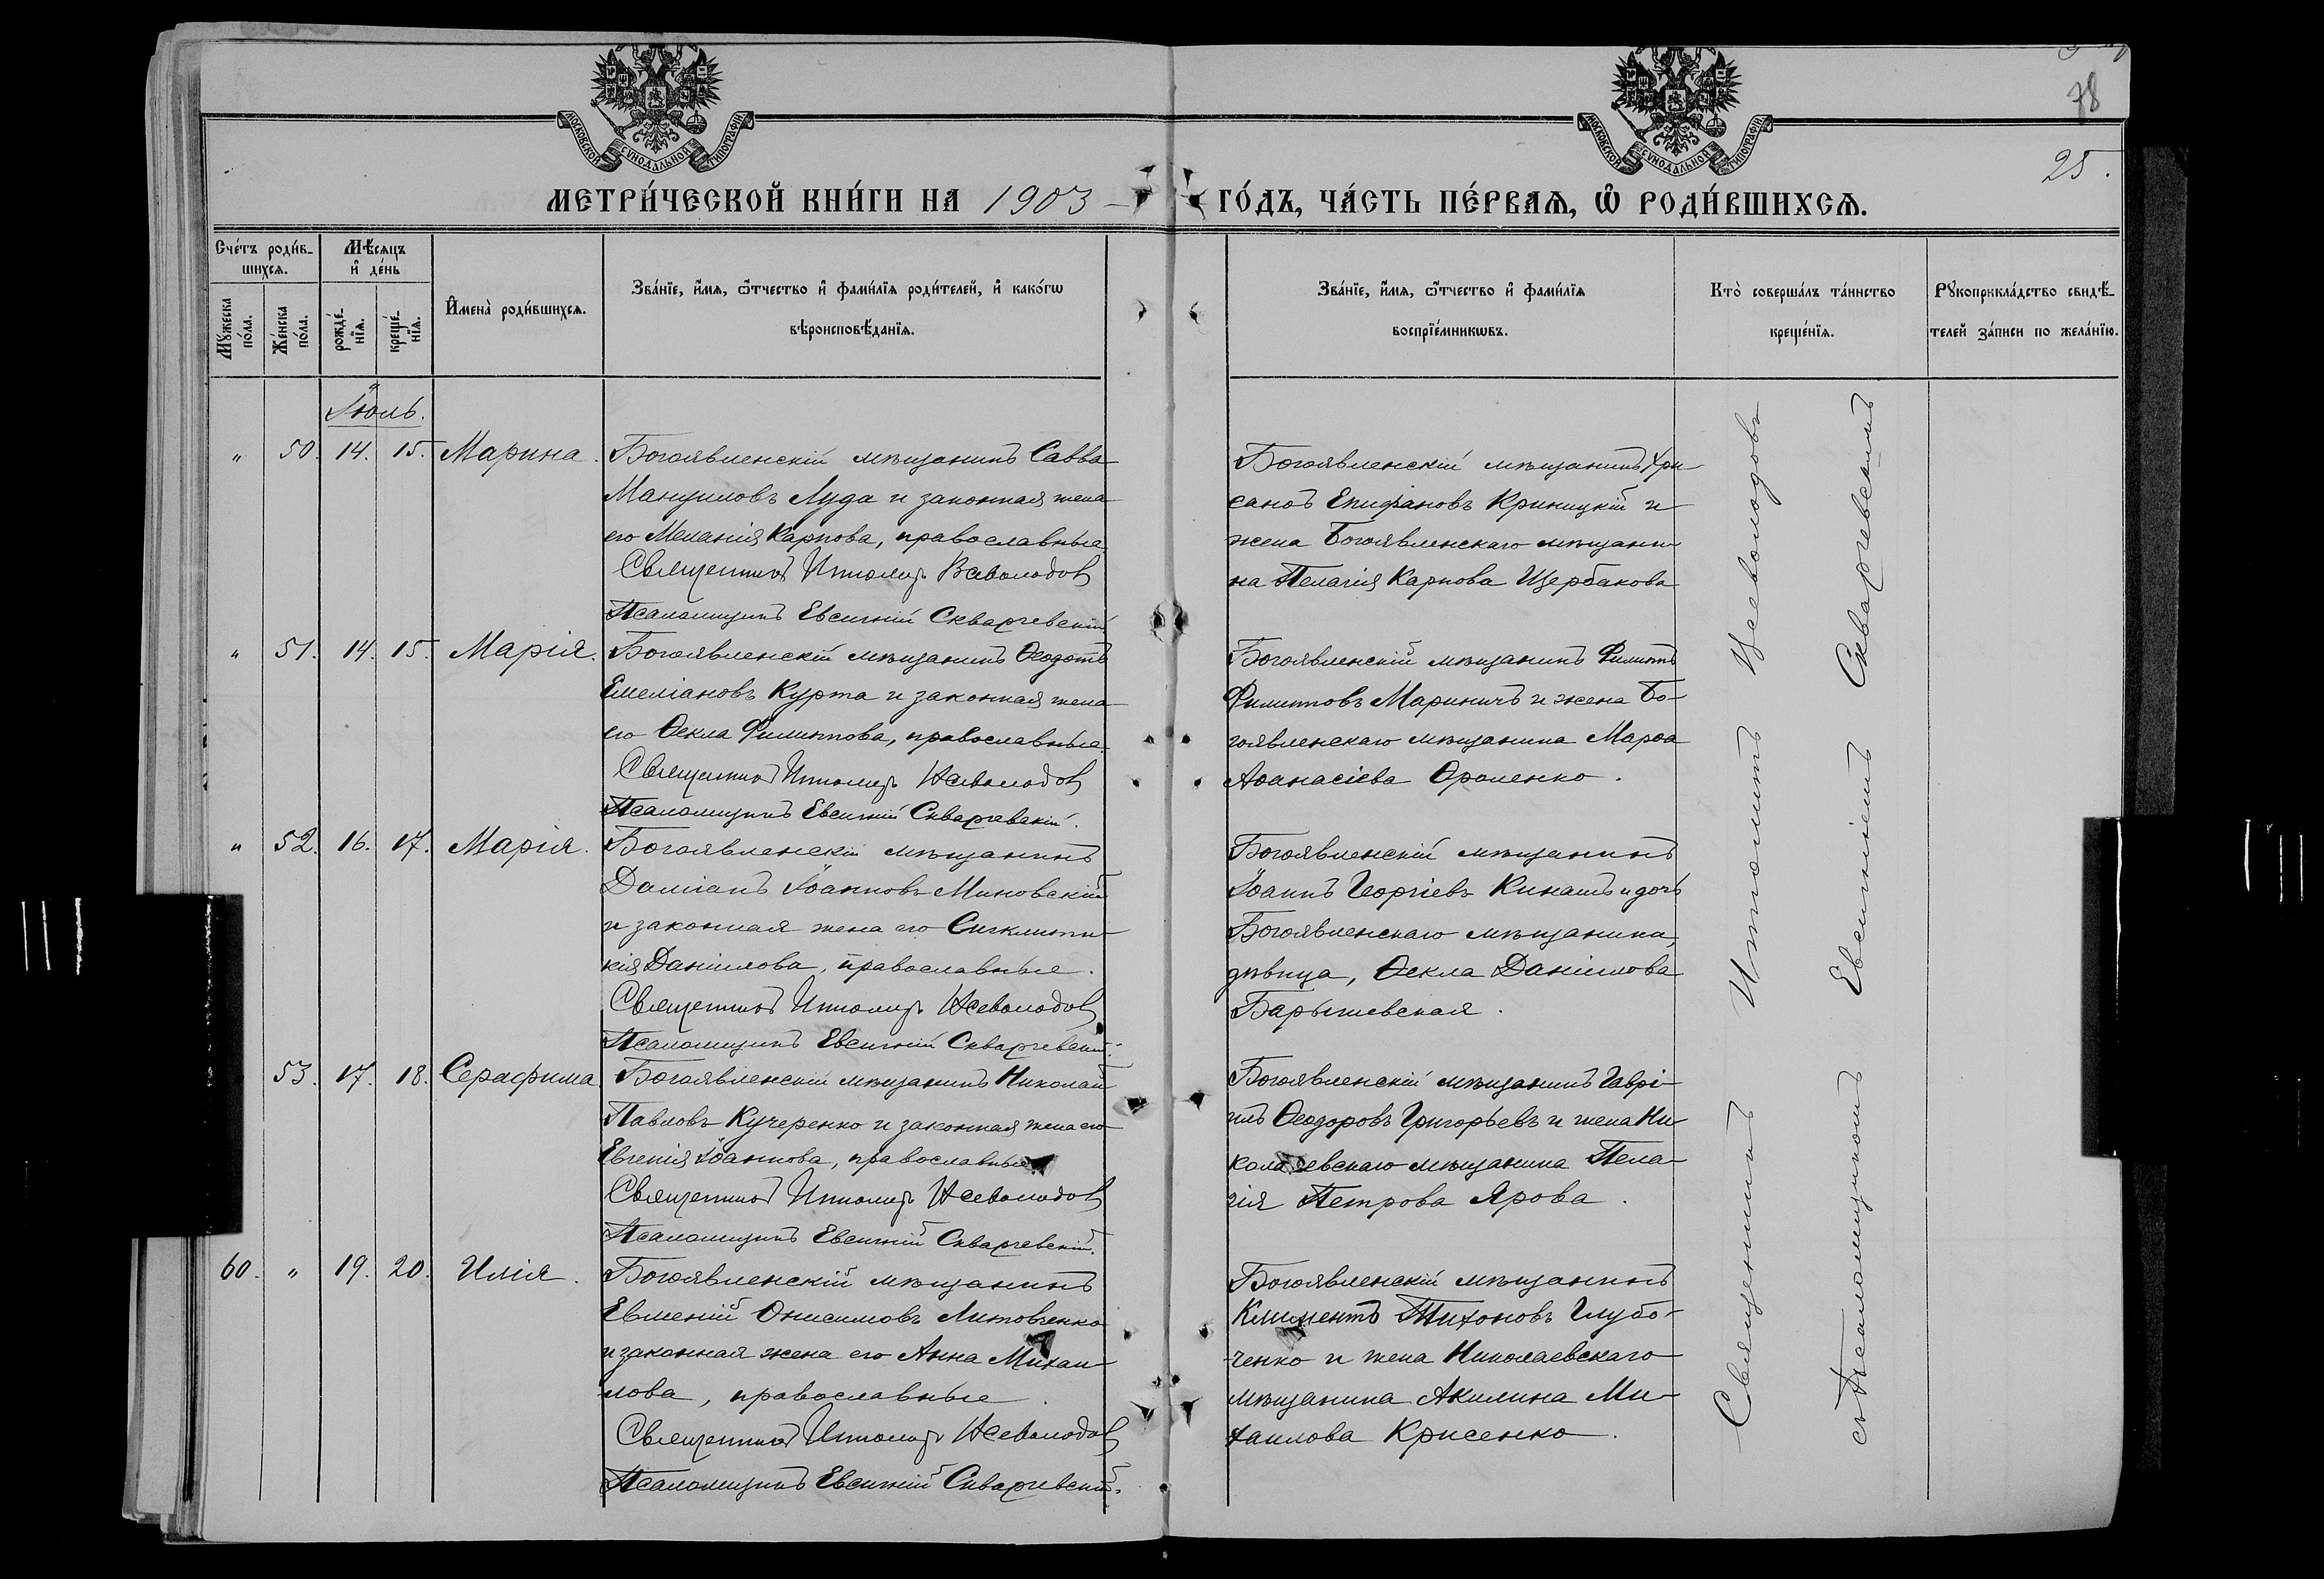 78
25.
МОСКОВСКОЙ СѴНОДАЛЬНОЙ ТИПОГРАФІИ
МОСКОВСКОЙ СѴНОДАЛЬНОЙ ТИПОГРАФІИ
МЕТРИ́ЧЕСКОЙ КНИ́ГИ НА 1903 ГО́ДЪ, ЧА́СТЬ ПЕ́РВАѦ, Ѡ҆ РОДИ́ВШИХСѦ.
Сче́тъ роди́в-
шихсѧ.
Мѣ́сѧцъ
и҆ де́нь
Мꙋ́жеска по́ла.
Же́нска по́ла.
рожде́-
нїѧ.
креще́-
нїѧ.
И҆мена̀ роди́вшихсѧ.
Зва́нїе, и҆́мѧ, ѻ҆́тчество и҆ фами́лїѧ роди́телей, и҆ како́гѡ
вѣроисповѣ́данїѧ.
Зва́нїе, и҆́мѧ, ѻ҆́тчество и҆ фами́лїѧ
воспрїе́мникѡвъ.
Кто̀ соверша́лъ та́инство
креще́нїѧ.
Рꙋкоприкла́дство свидѣ́-
телей за́писи по жела́нїю.
Іюль.
" 50. 14. 15. Марина. Богоявленскій мѣщанинъ Савва
Мануиловъ Луда и законная жена
его Меланія Карпова, православные.
Священникъ Ипполитъ Всеволодовъ
Псаломщикъ Евсигній Скваржевскій
Богоявленскій мѣщанинъ Хри-
санѳъ Епифановъ Криницкій и
жена Богоявленскаго мѣщани-
на Пелагія Карпова Щербакова
" 51. 14. 15. Марія. Богоявленскій мѣщанинъ Ѳеодотъ
Емеліановъ Курта и законная жена
его Ѳекла Филиппова, православные.
Священникъ Ипполитъ Всеволодовъ
Псаломщикъ Евсигній Скваржевскій.
Богоявленскій мѣщанинъ Филиппъ
Филипповъ Мариничъ и жена Бо-
гоявленскаго мѣщанина Марѳа
Аѳанасіева Ѳроленко.
" 52. 16. 17. Марія. Богоявленскій мѣщанинъ
Даміанъ Іоанновъ Миновскій
и законная жена его Сигклити-
кія Даніилова, православные.
Священникъ Ипполитъ Всеволодовъ
Псаломщикъ Евсигній Скваржевскій.
Богоявленскій мѣщанинъ
Іоаннъ Георгіевъ Кинашъ и дочь
Богоявленскаго мѣщанина,
дѣвица, Ѳекла Даніилова
Барышевская.
53. 17. 18. Серафима. Богоявленскій мѣщанинъ Николай
Павловъ Кучеренко и законная жена его
Евгенія Іоаннова, православные
Священникъ Ипполитъ Всеволодовъ
Псаломщикъ Евсигній Скваржевскій.
Богоявленскій мѣщанинъ Гаврі-
илъ Ѳеодоровъ Григорьевъ и жена Ни-
колаевскаго мѣщанина Пела-
гія Петрова Ярова.
60. " 19. 20. Илія. Богоявленскій мѣщанинъ
Евменій Онисимовъ Литовченко
и законная жена его Анна Михаи-
лова, православные.
Священникъ Ипполитъ Всеволодовъ
Псаломщикъ Евсигній Скваржевскій.
Богоявленскій мѣщанинъ
Климентъ Тихоновъ Глубо-
ченко и жена Николаевскаго
мѣщанина Акилина Ми-
хаилова Крисенко.
Священникъ Ипполитъ Всеволодовъ
съ Псаломщикомъ Евсигніемъ Скваржевскимъ